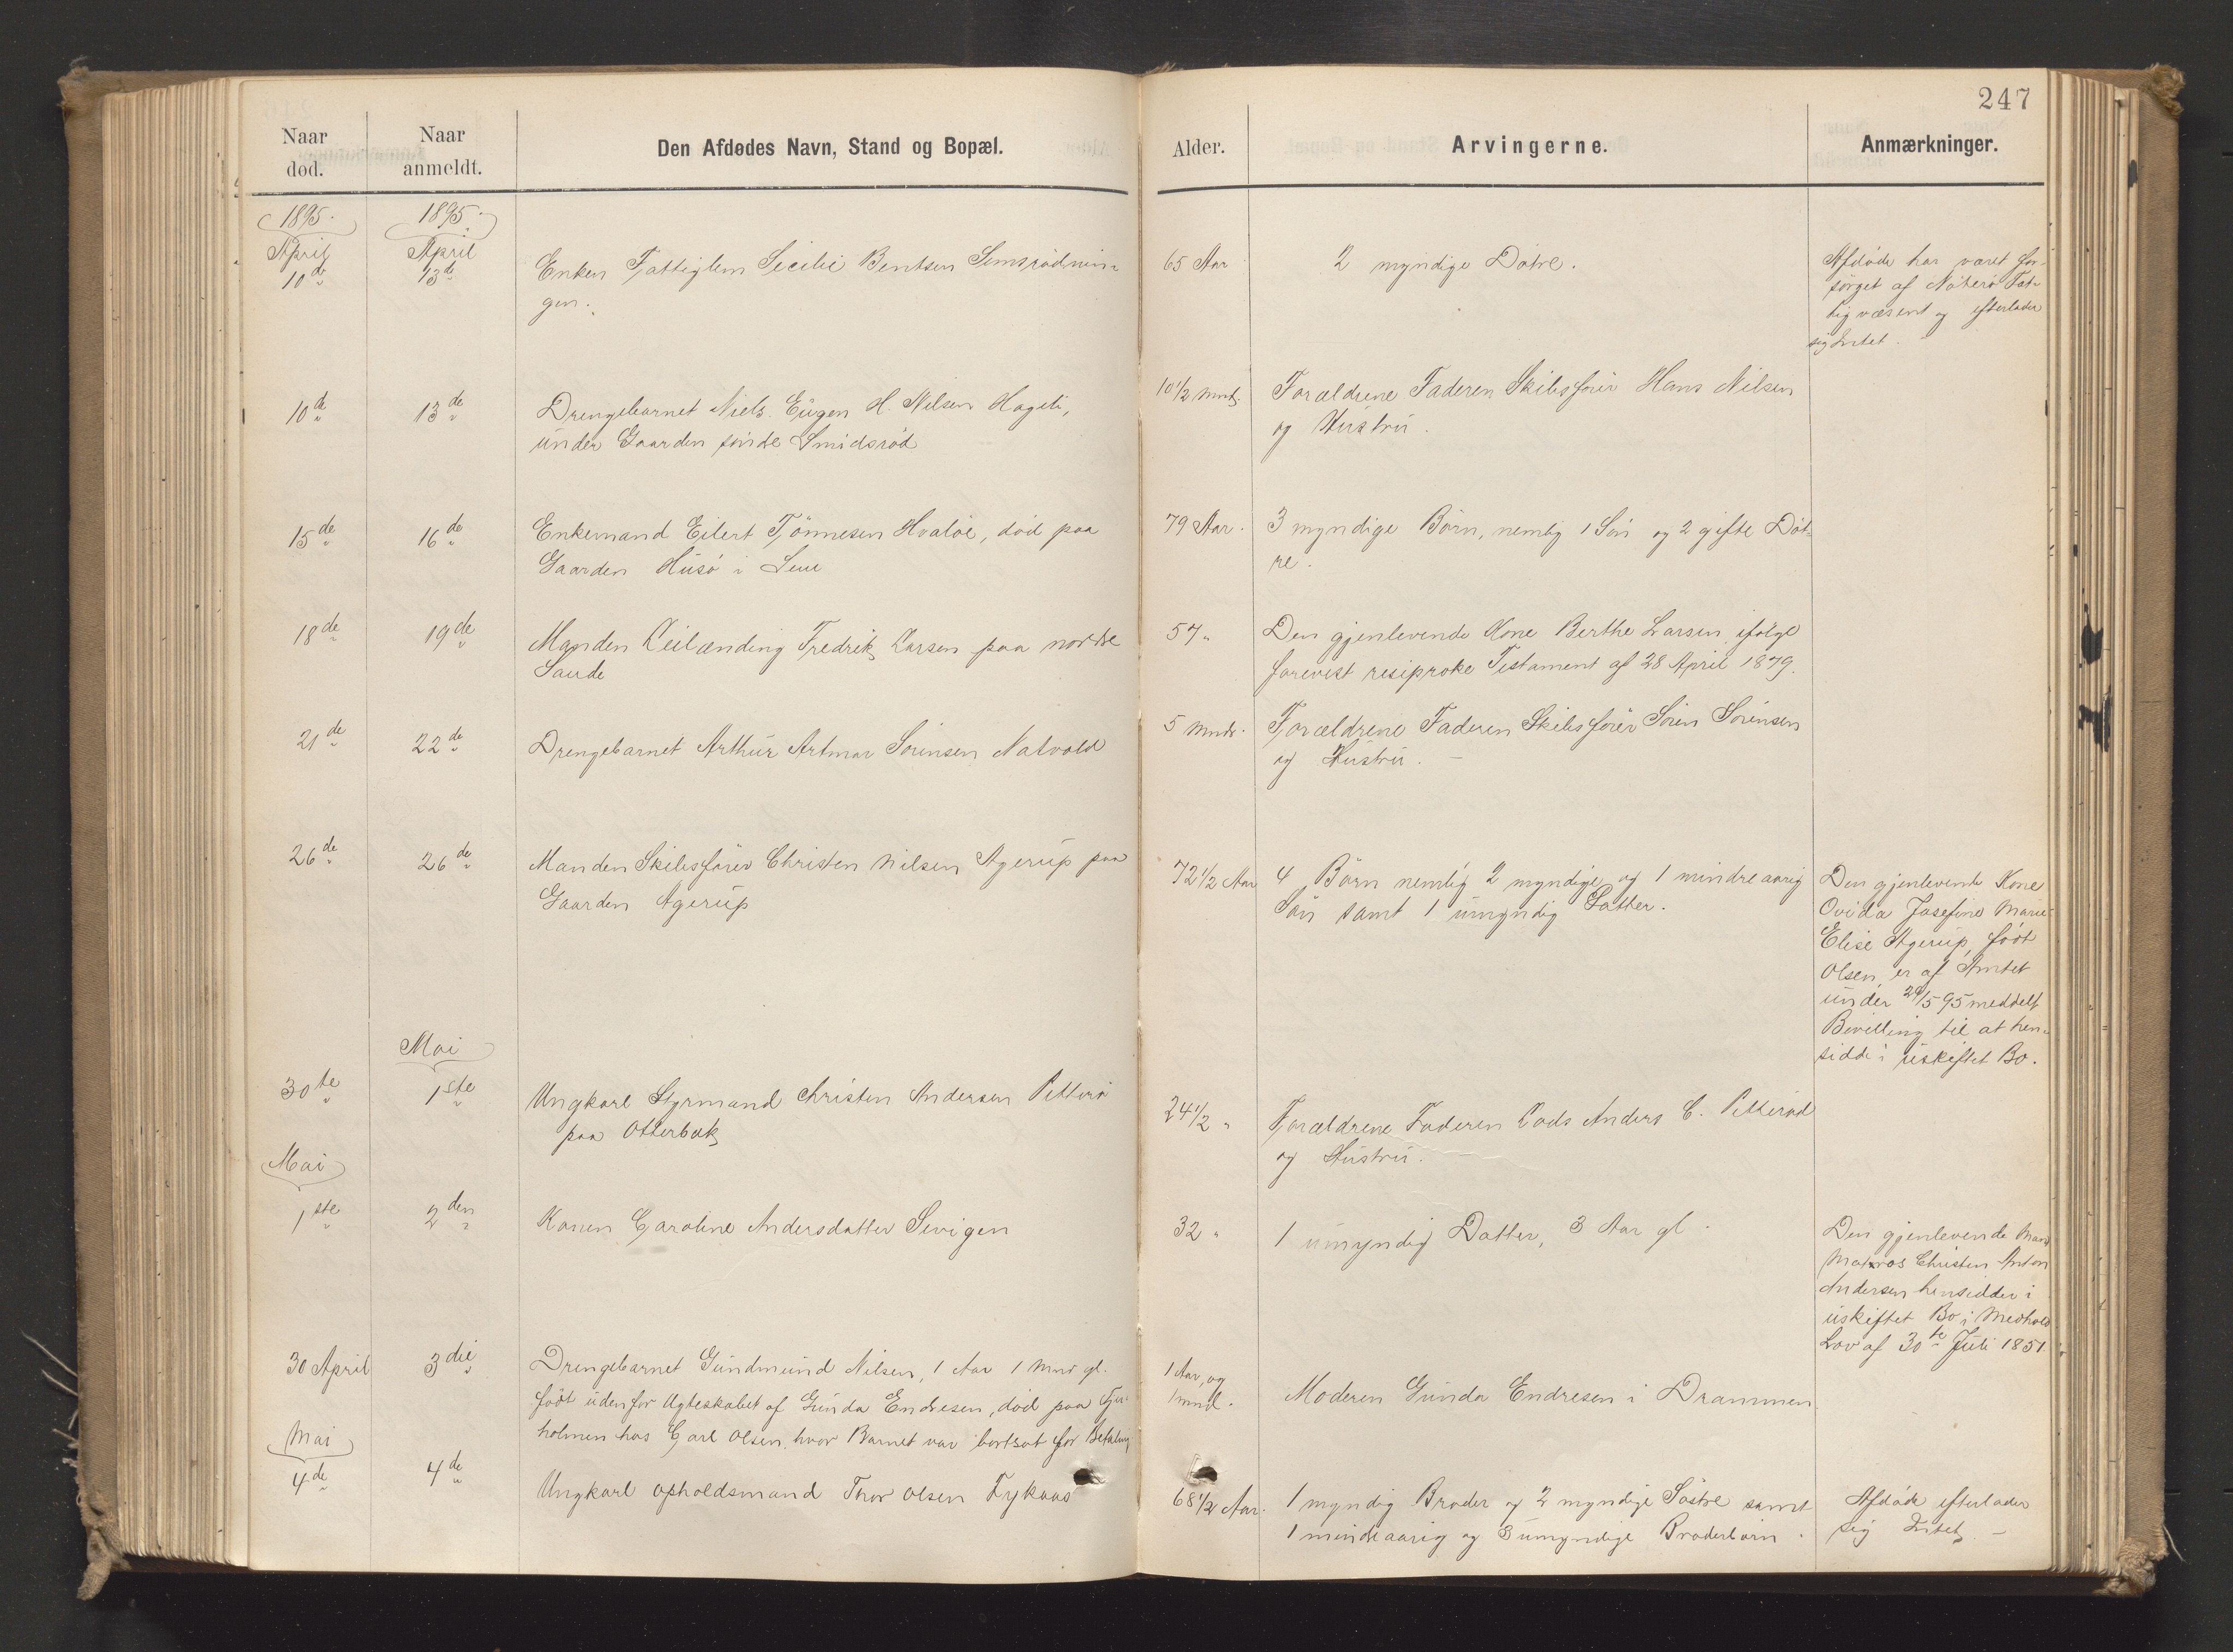 247
Naar død.
Naar anmeldt.
Den Afdødes Navn, Stand og Bopæl.
Alder.
Arvingerne.
Anmærkninger.
1895.
1895.
April
April
10de
13de
Enken Fattiglem Sicilie Bentsen Smsrødnin-
gen.
65 Aar
2 myndige Døtre.
Afdøde har været for-
sørget af Nøterø Fat-
tigvæsent og efterlader
sig Intet.
10de
13de
Drengebarnet Niels Eugen H. Nilsen Hageli,
under Gaarden søndre Smidsrød
10 1/2 Mnd.
Forældrene Faderen Skibsfører Hans Nilsen
og Hustru.
15de
16de
Enkemand Eilert Tjønnesen Hvaløe, død paa
Gaarden Husø i Sem
79 Aar.
3 myndige Børn, nemlig 1 Søn og 2 gifte Døt-
re.
18de
19de
Manden Leilænding Fredrik Larsen paa nordre
Sande
57 "
Den gjenlevende Kone Berthe Larsen ifølge
forevist resiproke Testament af 28 April 1879.
21de
22de
Drengebarnet Arthur Artmar Sørensen Natvold
5 Mndr.
Forældrene Faderen Skibsfører Søren Sørensen
og Hustru. –
26de
26de
Manden Skibsfører Christen Nilsen Agerup paa
Gaarden Agerup
72 1/2 Aar
4 Børn nemlig 2 myndige og 1 mindreaarig
Søn samt 1 umyndig Datter.
Den gjenlevende Kone
Ovida Josefine Marie
Elise Agerup, født
Olsen, er af Amtet
under 29/5 95 meddelt
Bevilling til at hen-
sidde i uskiftet Bo.
Mai
30te
1ste
Ungkarl Styrmand Christen Andersen Petterø
paa Otterbæk
24 1/2 "
Forældrene Faderen Lods Anders C. Petterød
og Hustru.
Mai
1ste
2den
Konen Caroline Andersdatter Sevigen
32 "
1 umyndig Datter, 3 Aar gl.
Den gjenlevende Mand
Matros Christen Anton
Andersen hensidder i
uskiftet Bo i Medhold
Lov af 30te Juli 1851.
30 April
3die
Drengebarnet Gundmund Nilsen, 1 Aar 1 Mnd gl.
født udenfor Ægteskabet af Gunda Endresen, død paa
holmen hos Carl Olsen, hvor Barnet var bortsat for Betaling
1 Aar, og
1 mnd.
Moderen Gunda Endresen i Drammen
Mai
4de
4de
Ungkarl opholdsmand Thor Olsen Fykaas
68 1/2 Aar.
1 myndig Broder og 2 myndige Søstre samt
1 mindreaarig og 3 umyndige Broderbørn.
Afdøde efterlader
sig Intet. –